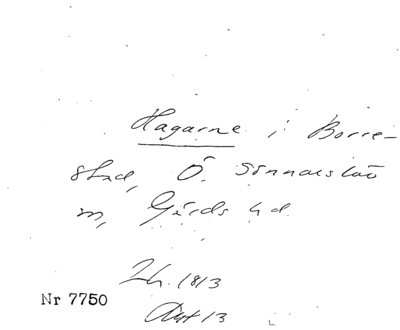 Hagarne i Borre-
stad, Ö. Sönnarslöv
m, Gärds hd.
Lh. 1813
Akt 13
Nr 7750